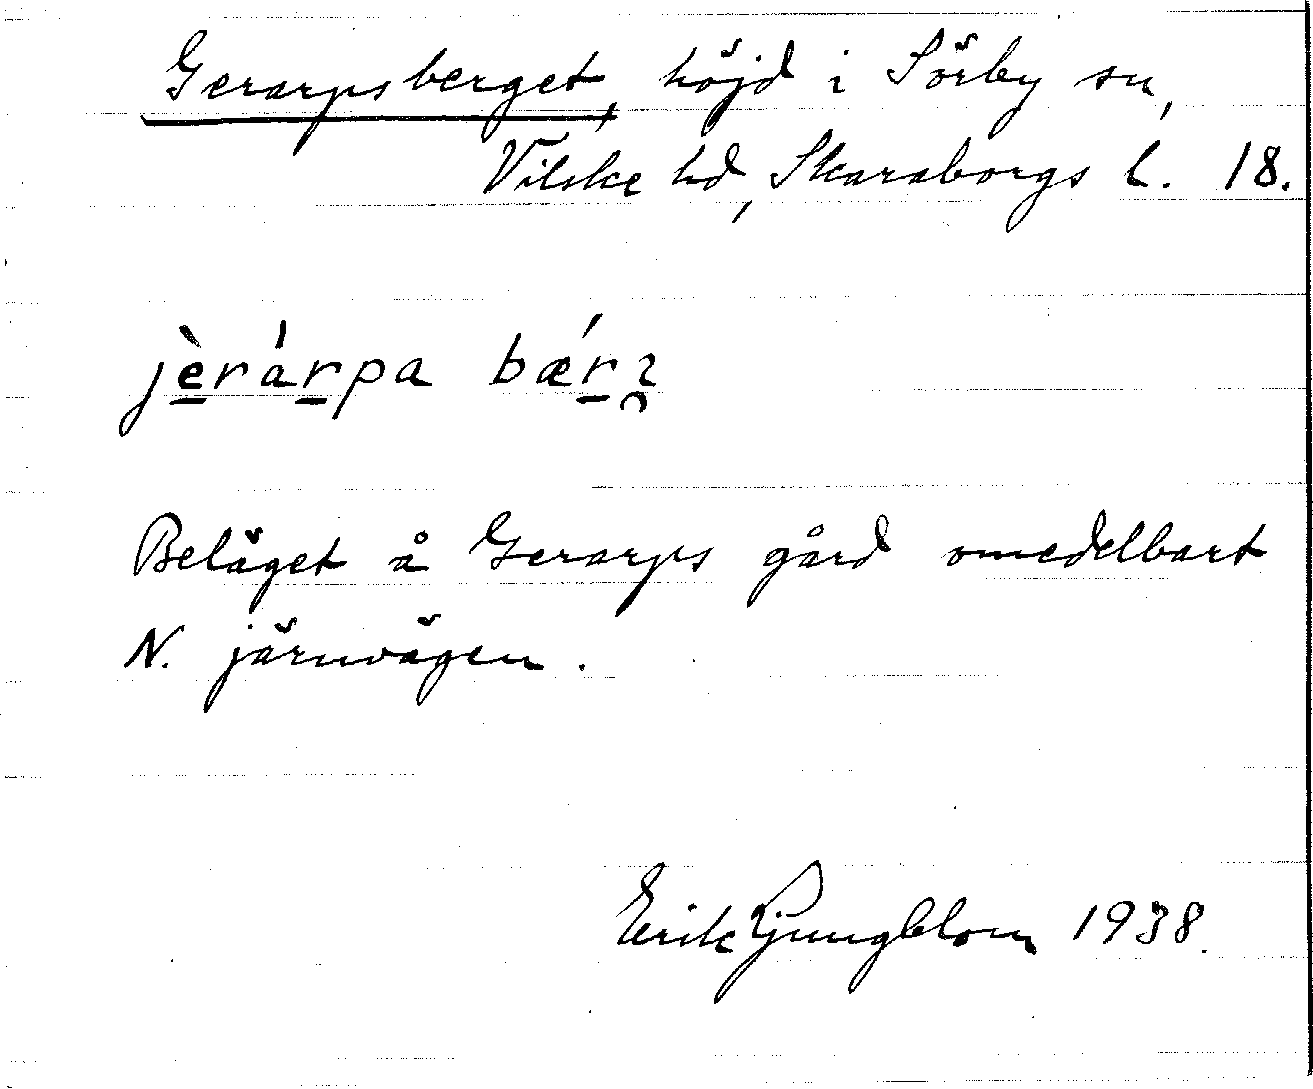 Gerarpsberget, höjd i Sörby sn,
Vilske hd, Skaraborgs l. 18.
jèrárpa bǽrꝛ̯
Beläget å Gerarps gård omedelbart
N. järnvägen.
Erik Ljungblom 1938.